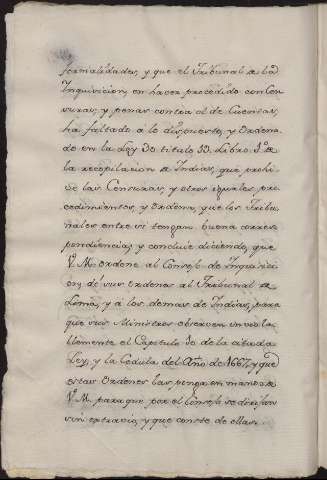 formalidades, y que el Tribunal de la
Inquisicion, en hacer procedido con Cen
suras, y penas contra el de Cuentas,
ha faltado à lo dispuesto, y Ordena
do en la Ley 30 titulo 19. Libro 1º de
la recopilacion de Indias, que prohi
ve las Censuras, y otros iguales pro
cedimientos, y Ordena, que los Tribu
nales entre si tengan buena corres
pondiencia; y concluie diciendo, que
V. M. ordene al Consejo de Inquisi
cion, dé sus ordenes al Tribunal de
Lima, y à los demas de Indias, para
que sus Ministros observen inviola
blemente el Capitulo 30 de la citada
Ley, y la Cedula del Año de 1667, y que
estas Ordenes las ponga en manos de
V. M. para que por el Consejo se dirijan
sin extravio, y que conste de ellas.